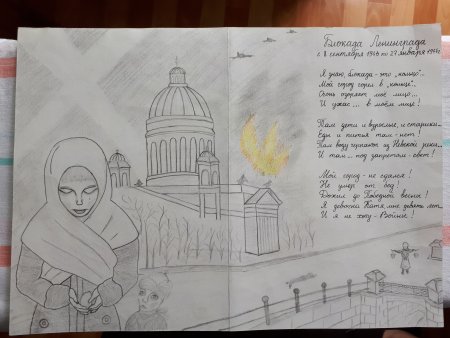 Блокада Ленинграда
с 8 сентября 1941 по 27 января 1944г.
Я знаю, блокада - это "кольцо"...
Мой город горел в "кольце"!..
Огонь озаряет моё лицо...
И ужас... в моём лице!
Там дети и взрослые, и старики...
Еды и питья там - нет!
Там воду черпают из Невской реки...
И там... под запретом - свет!
Мой город - не сдался!
Не умер от бед!
Дожил до Победной весны!
Я девочка Катя, мне девять лет...
И я не хочу - Войны!